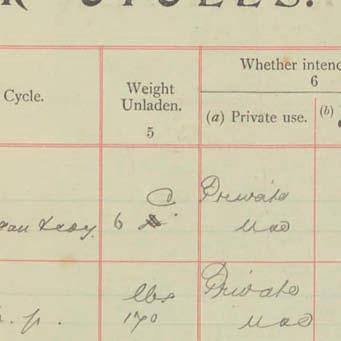 R CYCLES.
Cycle.
Weight
Unladen.
5
Whether inten
6
(a) Private use.
(b)
6 C
Private
use
lbs
170
Private
use
h.p.